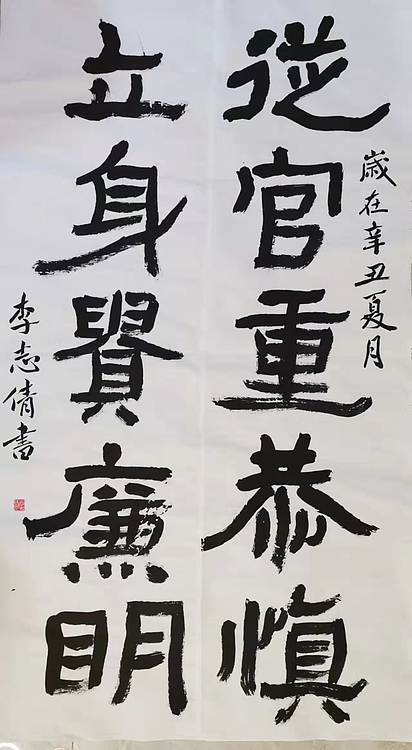 從官重恭慎
歲在辛丑夏月
立身貴廉眀
李志倩書